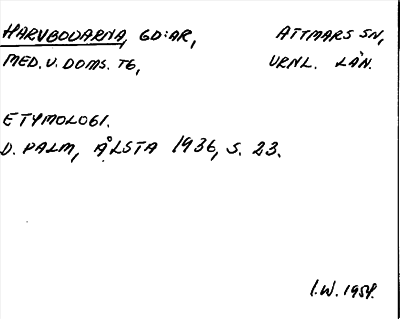 HARVBODARNA, GD:AR, ATTMARS SN,
MED. V. DOMS. TG, VRNL. LÄN.
ETYMOLOGI.
D. PALM, ÅLSTA 1936, S. 23.
I.W. 1954.